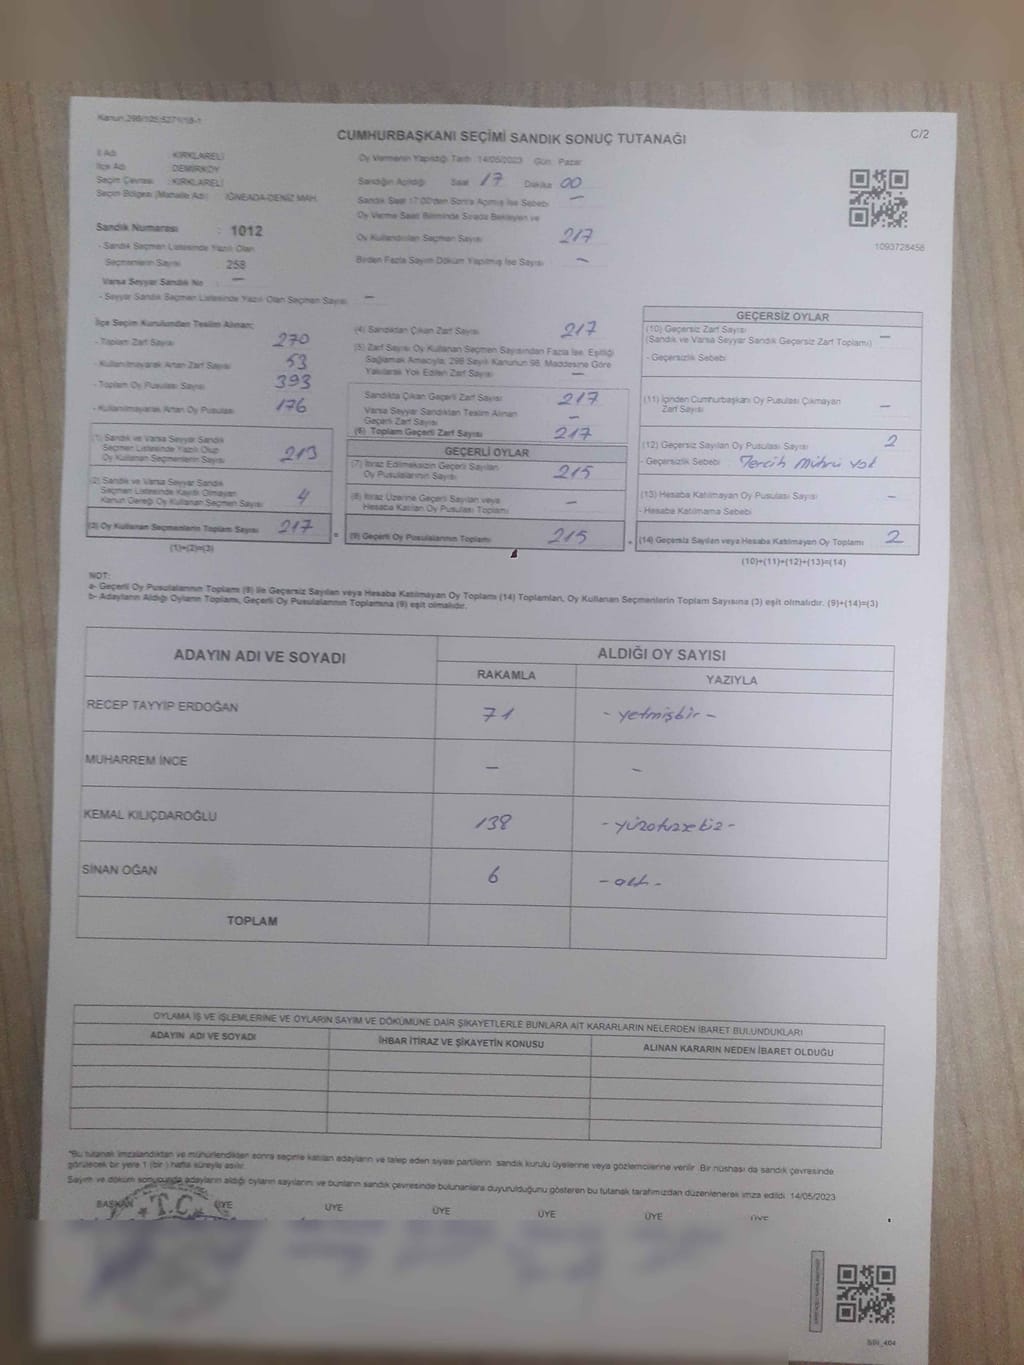 Kanun 298/105;6271/18-1
C/2
CUMHURBAŞKANI SEÇİMİ SANDIK SONUÇ TUTANAĞI
İl Adı : KIRKLARELİ
İlçe Adı : DEMİRKÖY
Seçim Çevresi : KIRKLARELİ
Seçim Bölgesi (Mahalle Adı) : İĞNEADA-DENİZ MAH.
Sandık Numarası : 1012
- Sandık Seçmen Listesinde Yazılı Olan
Seçmenlerin Sayısı 258
Varsa Seyyar Sandık No : —
- Seyyar Sandık Seçmen Listesinde Yazılı Olan Seçmen Sayısı —
Oy Vermenin Yapıldığı Tarih : 14/05/2023 Gün : Pazar
Sandığın Açıldığı Saat 17 Dakika 00
Sandık Saat 17:00'den Sonra Açılmış İse Sebebi —
Oy Verme Saati Bitiminde Sırada Bekleyen ve
Oy Kullandırılan Seçmen Sayısı 217
Birden Fazla Sayım Döküm Yapılmış İse Sayısı —
1093728456
İlçe Seçim Kurulundan Teslim Alınan;
- Toplam Zarf Sayısı 270
- Kullanılmayarak Artan Zarf Sayısı 53
- Toplam Oy Pusulası Sayısı 393
- Kullanılmayarak Artan Oy Pusulası 176
(1) Sandık ve Varsa Seyyar Sandık
Seçmen Listesinde Yazılı Olup
Oy Kullanan Seçmenlerin Sayısı 213
(2) Sandık ve Varsa Seyyar Sandık
Seçmen Listesinde Kayıtlı Olmayan
Kanun Gereği Oy Kullanan Seçmen Sayısı 4
(3) Oy Kullanan Seçmenlerin Toplam Sayısı 217
(1)+(2)=(3)
(4) Sandıktan Çıkan Zarf Sayısı 217
(5) Zarf Sayısı Oy Kullanan Seçmen Sayısından Fazla İse, Eşitliği
Sağlamak Amacıyla, 298 Sayılı Kanunun 98. Maddesine Göre
Yakılarak Yok Edilen Zarf Sayısı —
Sandıkta Çıkan Geçerli Zarf Sayısı 217
Varsa Seyyar Sandıktan Teslim Alınan
Geçerli Zarf Sayısı —
(6) Toplam Geçerli Zarf Sayısı 217
GEÇERLİ OYLAR
(7) İtiraz Edilmeksizin Geçerli Sayılan
Oy Pusulalarının Sayısı 215
(8) İtiraz Üzerine Geçerli Sayılan veya
Hesaba Katılan Oy Pusulası Toplamı —
= (9) Geçerli Oy Pusulalarının Toplamı 215
GEÇERSİZ OYLAR
(10) Geçersiz Zarf Sayısı —
(Sandık ve Varsa Seyyar Sandık Geçersiz Zarf Toplamı)
- Geçersizlik Sebebi
(11) İçinden Cumhurbaşkanı Oy Pusulası Çıkmayan
Zarf Sayısı —
(12) Geçersiz Sayılan Oy Pusulası Sayısı 2
- Geçersizlik Sebebi Tercih Mührü Yok
(13) Hesaba Katılmayan Oy Pusulası Sayısı —
- Hesaba Katılmama Sebebi
+ (14) Geçersiz Sayılan veya Hesaba Katılmayan Oy Toplamı 2
(10)+(11)+(12)+(13)=(14)
NOT:
a- Geçerli Oy Pusulalarının Toplamı (9) ile Geçersiz Sayılan veya Hesaba Katılmayan Oy Toplamı (14) Toplamları, Oy Kullanan Seçmenlerin Toplam Sayısına (3) eşit olmalıdır. (9)+(14)=(3)
b- Adayların Aldığı Oyların Toplamı, Geçerli Oy Pusulalarının Toplamına (9) eşit olmalıdır.
ADAYIN ADI VE SOYADI ALDIĞI OY SAYISI
RAKAMLA YAZIYLA
RECEP TAYYİP ERDOĞAN 71 - yetmişbir -
MUHARREM İNCE — —
KEMAL KILIÇDAROĞLU 138 - yüzotuzsekiz -
SİNAN OĞAN 6 - altı -
TOPLAM
OYLAMA İŞ VE İŞLEMLERİNE VE OYLARIN SAYIM VE DÖKÜMÜNE DAİR ŞİKAYETLERLE BUNLARA AİT KARARLARIN NELERDEN İBARET BULUNDUKLARI
ADAYIN ADI VE SOYADI İHBAR İTİRAZ VE ŞİKAYETİN KONUSU ALINAN KARARIN NEDEN İBARET OLDUĞU
*Bu tutanak imzalandıktan ve mühürlendikten sonra seçime katılan adayların ve talep eden siyasi partilerin sandık kurulu üyelerine veya gözlemcilerine verilir. Bir nüshası da sandık çevresinde
görülecek bir yere 1 (bir ) hafta süreyle asılır.
Sayım ve döküm sonucunda adayların aldığı oyların sayılarını ve bunların sandık çevresinde bulunanlara duyurulduğunu gösteren bu tutanak tarafımızdan düzenlenerek imza edildi. 14/05/2023
BAŞKAN ÜYE ÜYE ÜYE ÜYE ÜYE ÜYE
T.C.